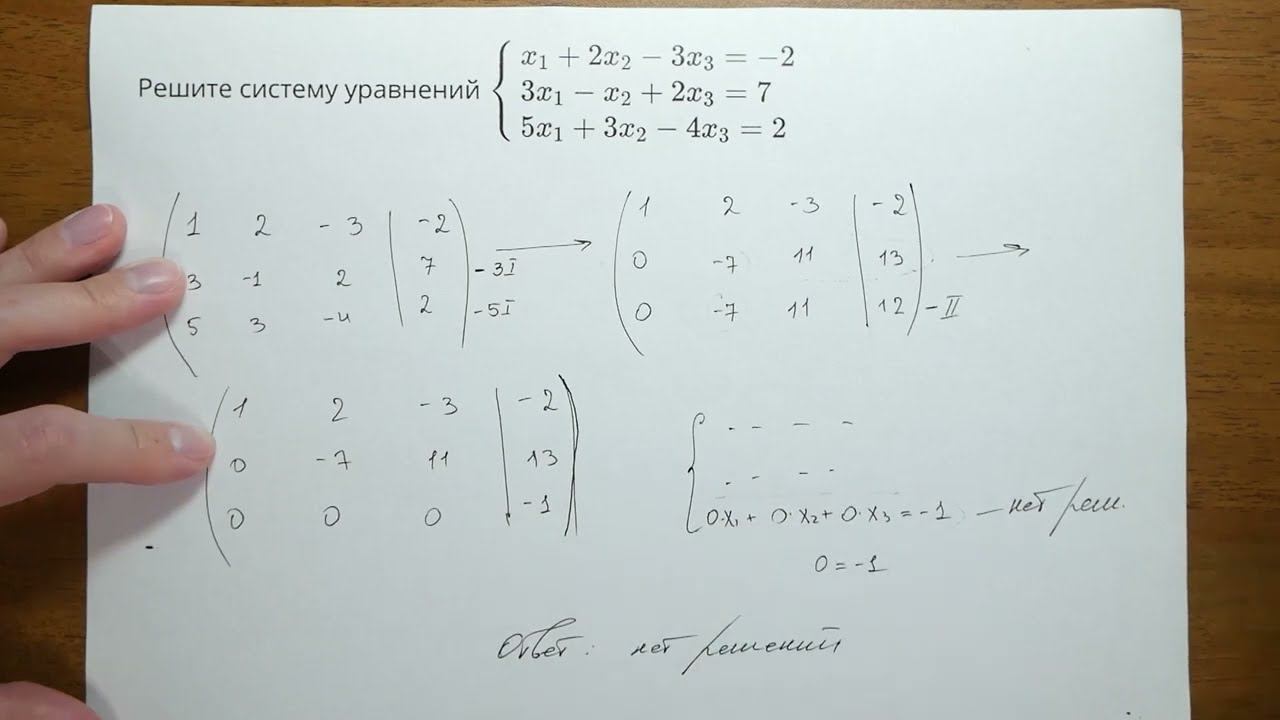 Решите систему уравнений { x₁ + 2x₂ − 3x₃ = −2
3x₁ − x₂ + 2x₃ = 7
5x₁ + 3x₂ − 4x₃ = 2
( 1 2 -3 | -2 )
( 3 -1 2 | 7 ) -3I →
( 5 3 -4 | 2 ) -5I
( 1 2 -3 | -2 )
( 0 -7 11 | 13 ) →
( 0 -7 11 | 12 ) -II
( 1 2 -3 | -2 )
( 0 -7 11 | 13 )
( 0 0 0 | -1 )
{ - - - -
- - - -
0·x₁ + 0·x₂ + 0·x₃ = -1 — нет реш.
0 = -1
Ответ: нет решений